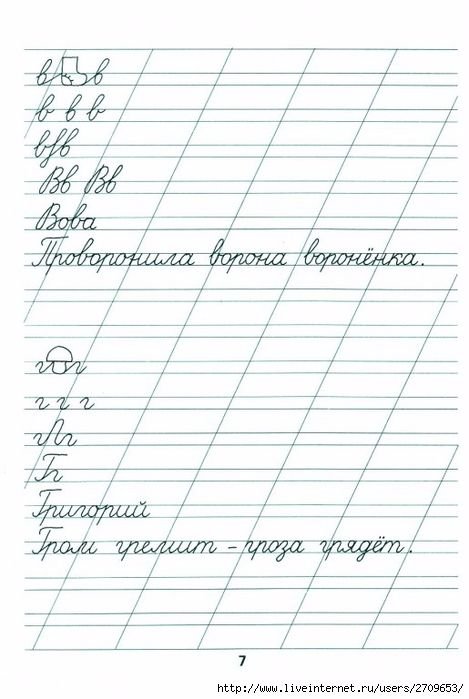 в в
в в в
в в
Вв Вв
Вова
Проворонила ворона воронёнка.
г г
г г г
г г
Гг
Григорий
Гром гремит - гроза грядёт.
7
http://www.liveinternet.ru/users/2709653/